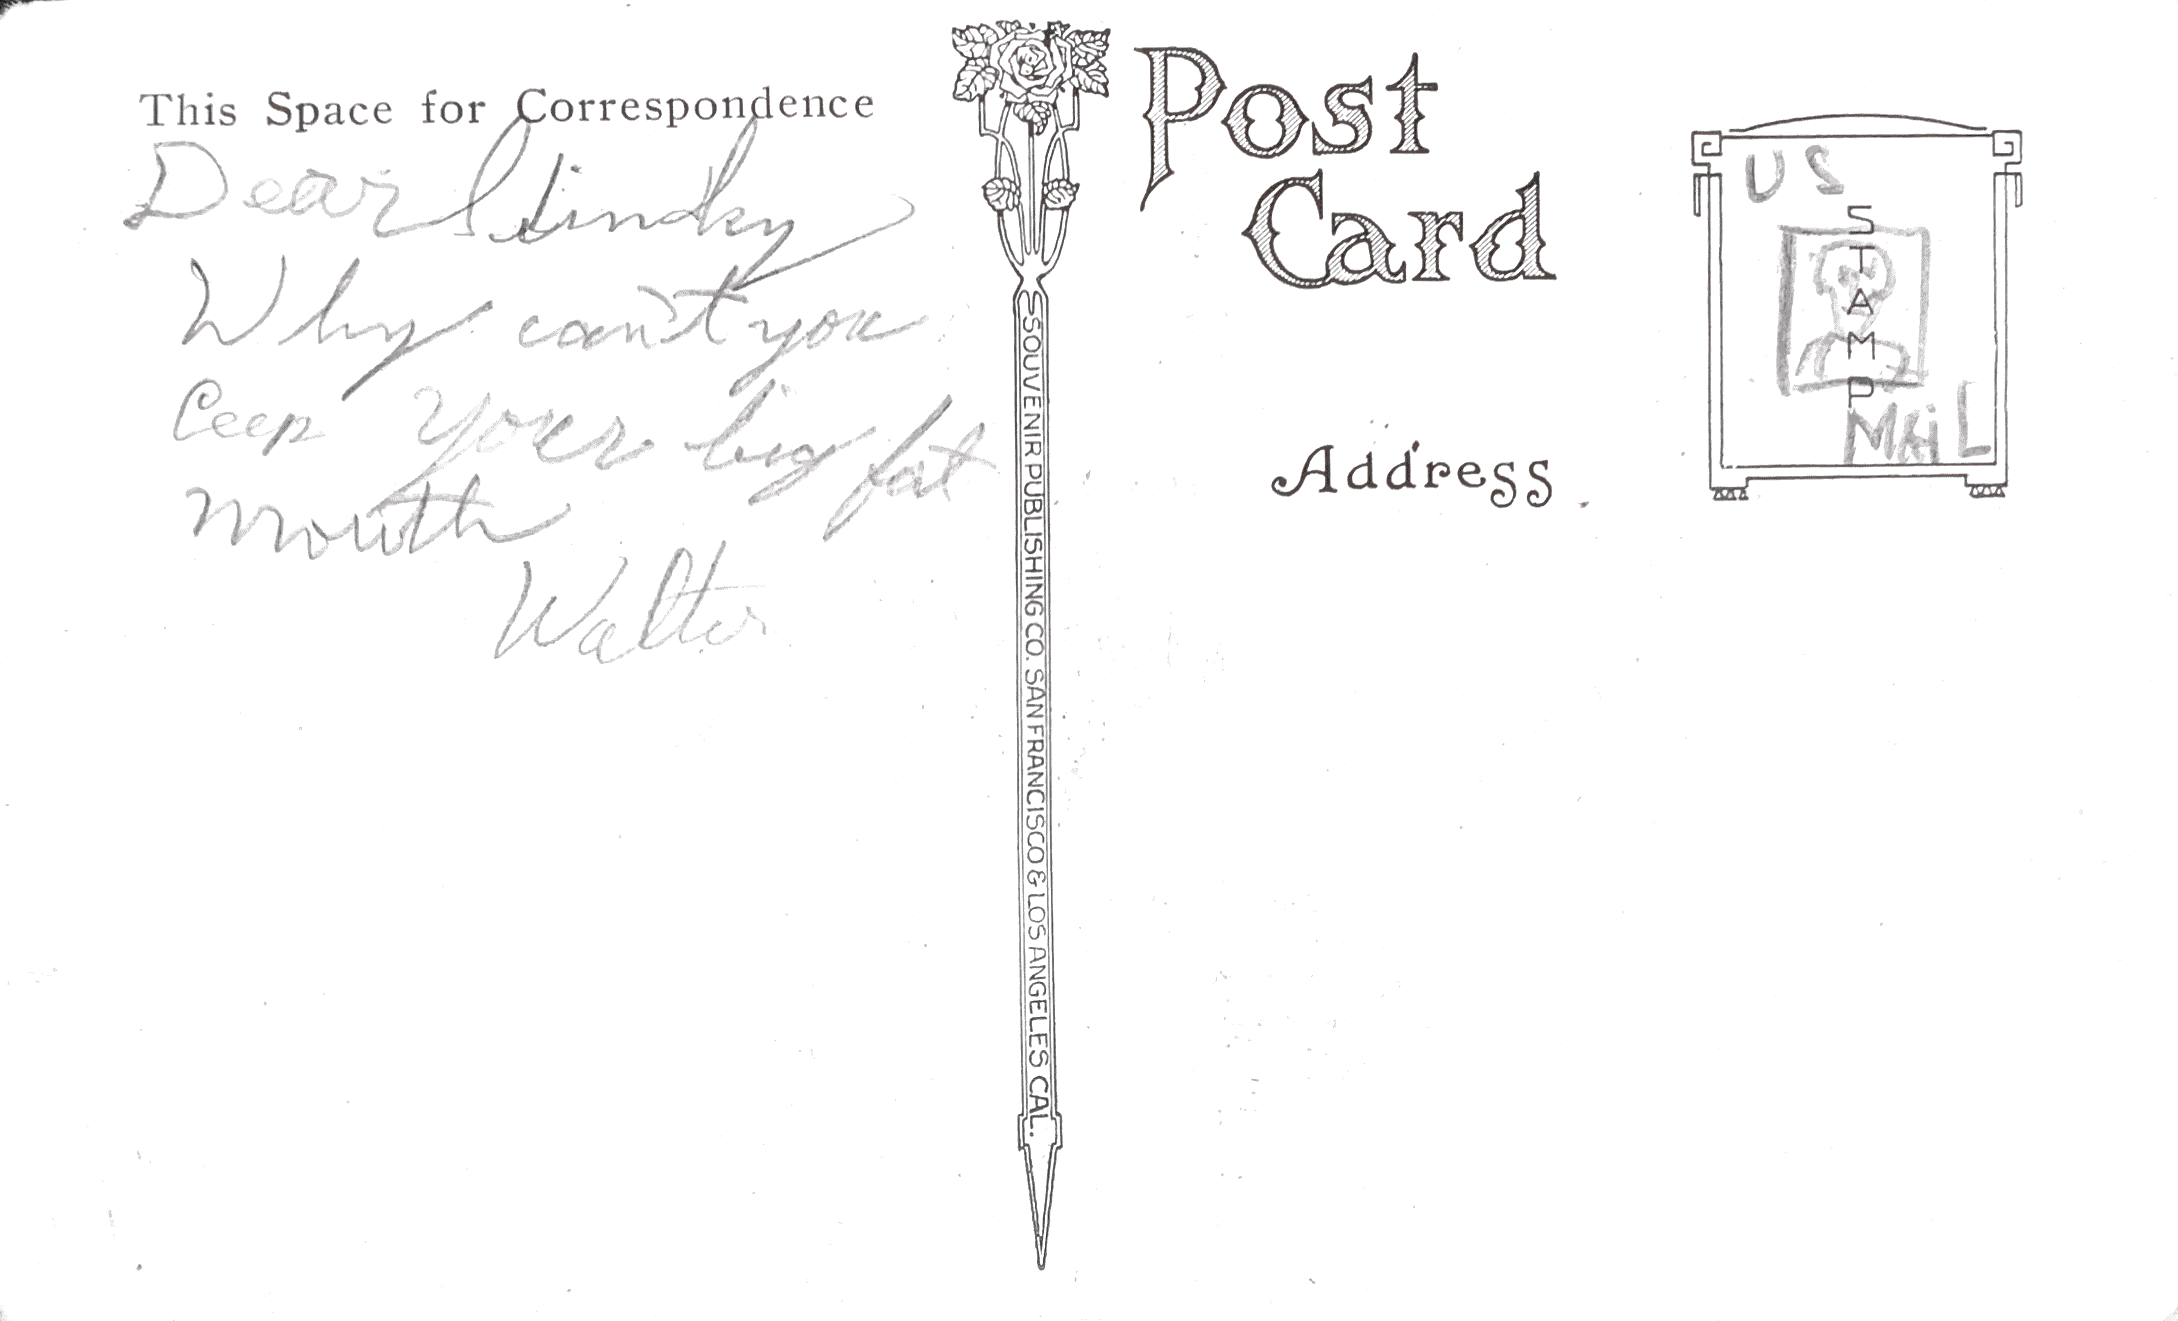 This Space for Correspondence
Dear
Why can't you
Ceep your big fat
mouth
Walter
SOUVENIR PUBLISHING CO. SAN FRANCISCO & LOS ANGELES CAL.
Post
Card
Address
US
STAMP
MAiL